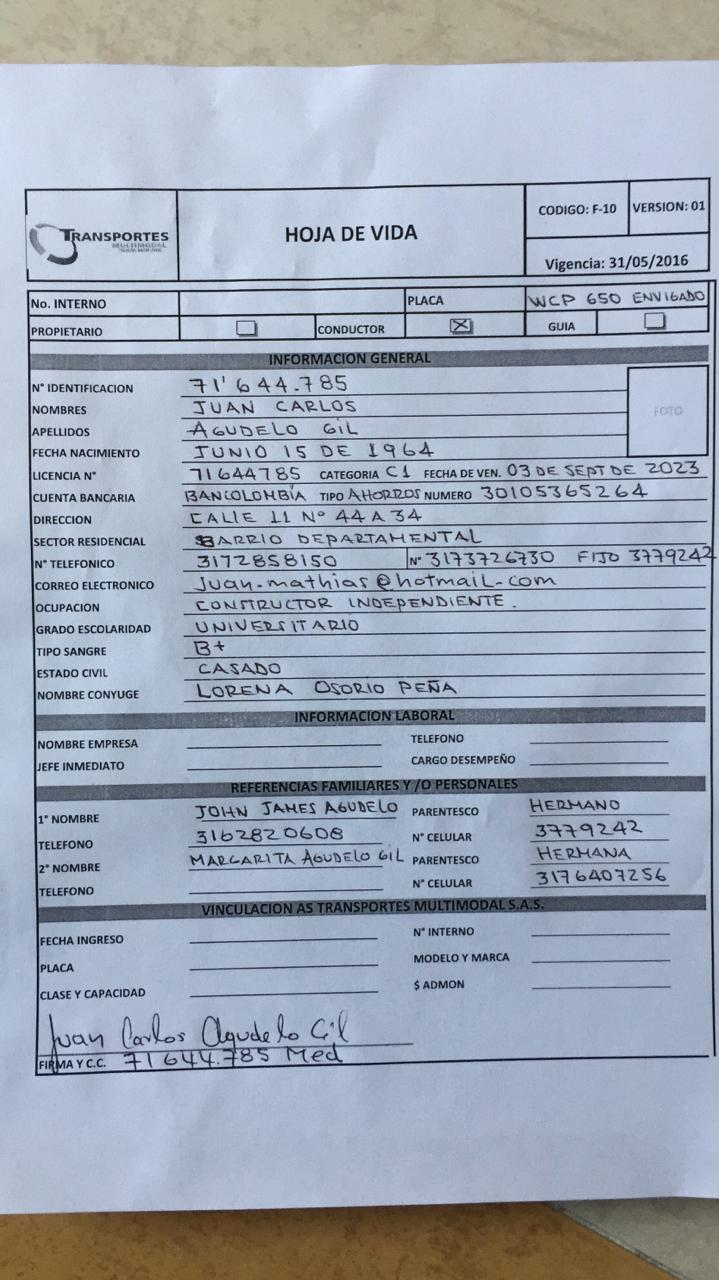 TRANSPORTES
MULTIMODAL
HOJA DE VIDA
CODIGO: F-10 VERSION: 01
Vigencia: 31/05/2016
No. INTERNO PLACA WCP 650 ENVIGADO
PROPIETARIO CONDUCTOR ☒ GUIA
INFORMACION GENERAL
N° IDENTIFICACION 71'644.785
NOMBRES JUAN CARLOS
FOTO
APELLIDOS AGUDELO GIL
FECHA NACIMIENTO JUNIO 15 DE 1964
LICENCIA N° 71644785 CATEGORIA C1 FECHA DE VEN. 03 DE SEPT DE 2023
CUENTA BANCARIA BANCOLOMBIA TIPO AHORROS NUMERO 30105365264
DIRECCION CALLE 11 N° 44 A 34
SECTOR RESIDENCIAL BARRIO DEPARTAMENTAL
N° TELEFONICO 3172858150 N° 3173726730 FIJO 3779242
CORREO ELECTRONICO Juan.mathias@hotmail.com
OCUPACION CONSTRUCTOR INDEPENDIENTE.
GRADO ESCOLARIDAD UNIVERSITARIO
TIPO SANGRE B+
ESTADO CIVIL CASADO
NOMBRE CONYUGE LORENA OSORIO PEÑA
INFORMACION LABORAL
NOMBRE EMPRESA TELEFONO
JEFE INMEDIATO CARGO DESEMPEÑO
REFERENCIAS FAMILIARES Y /O PERSONALES
1° NOMBRE JOHN JAMES AGUDELO PARENTESCO HERMANO
TELEFONO 3162820608 N° CELULAR 3779242
2° NOMBRE MARGARITA AGUDELO GIL PARENTESCO HERMANA
TELEFONO N° CELULAR 3176407256
VINCULACION AS TRANSPORTES MULTIMODAL S.A.S.
FECHA INGRESO N° INTERNO
PLACA MODELO Y MARCA
CLASE Y CAPACIDAD $ ADMON
Juan Carlos Agudelo Gil
FIRMA Y C.C. 71644.785 Med